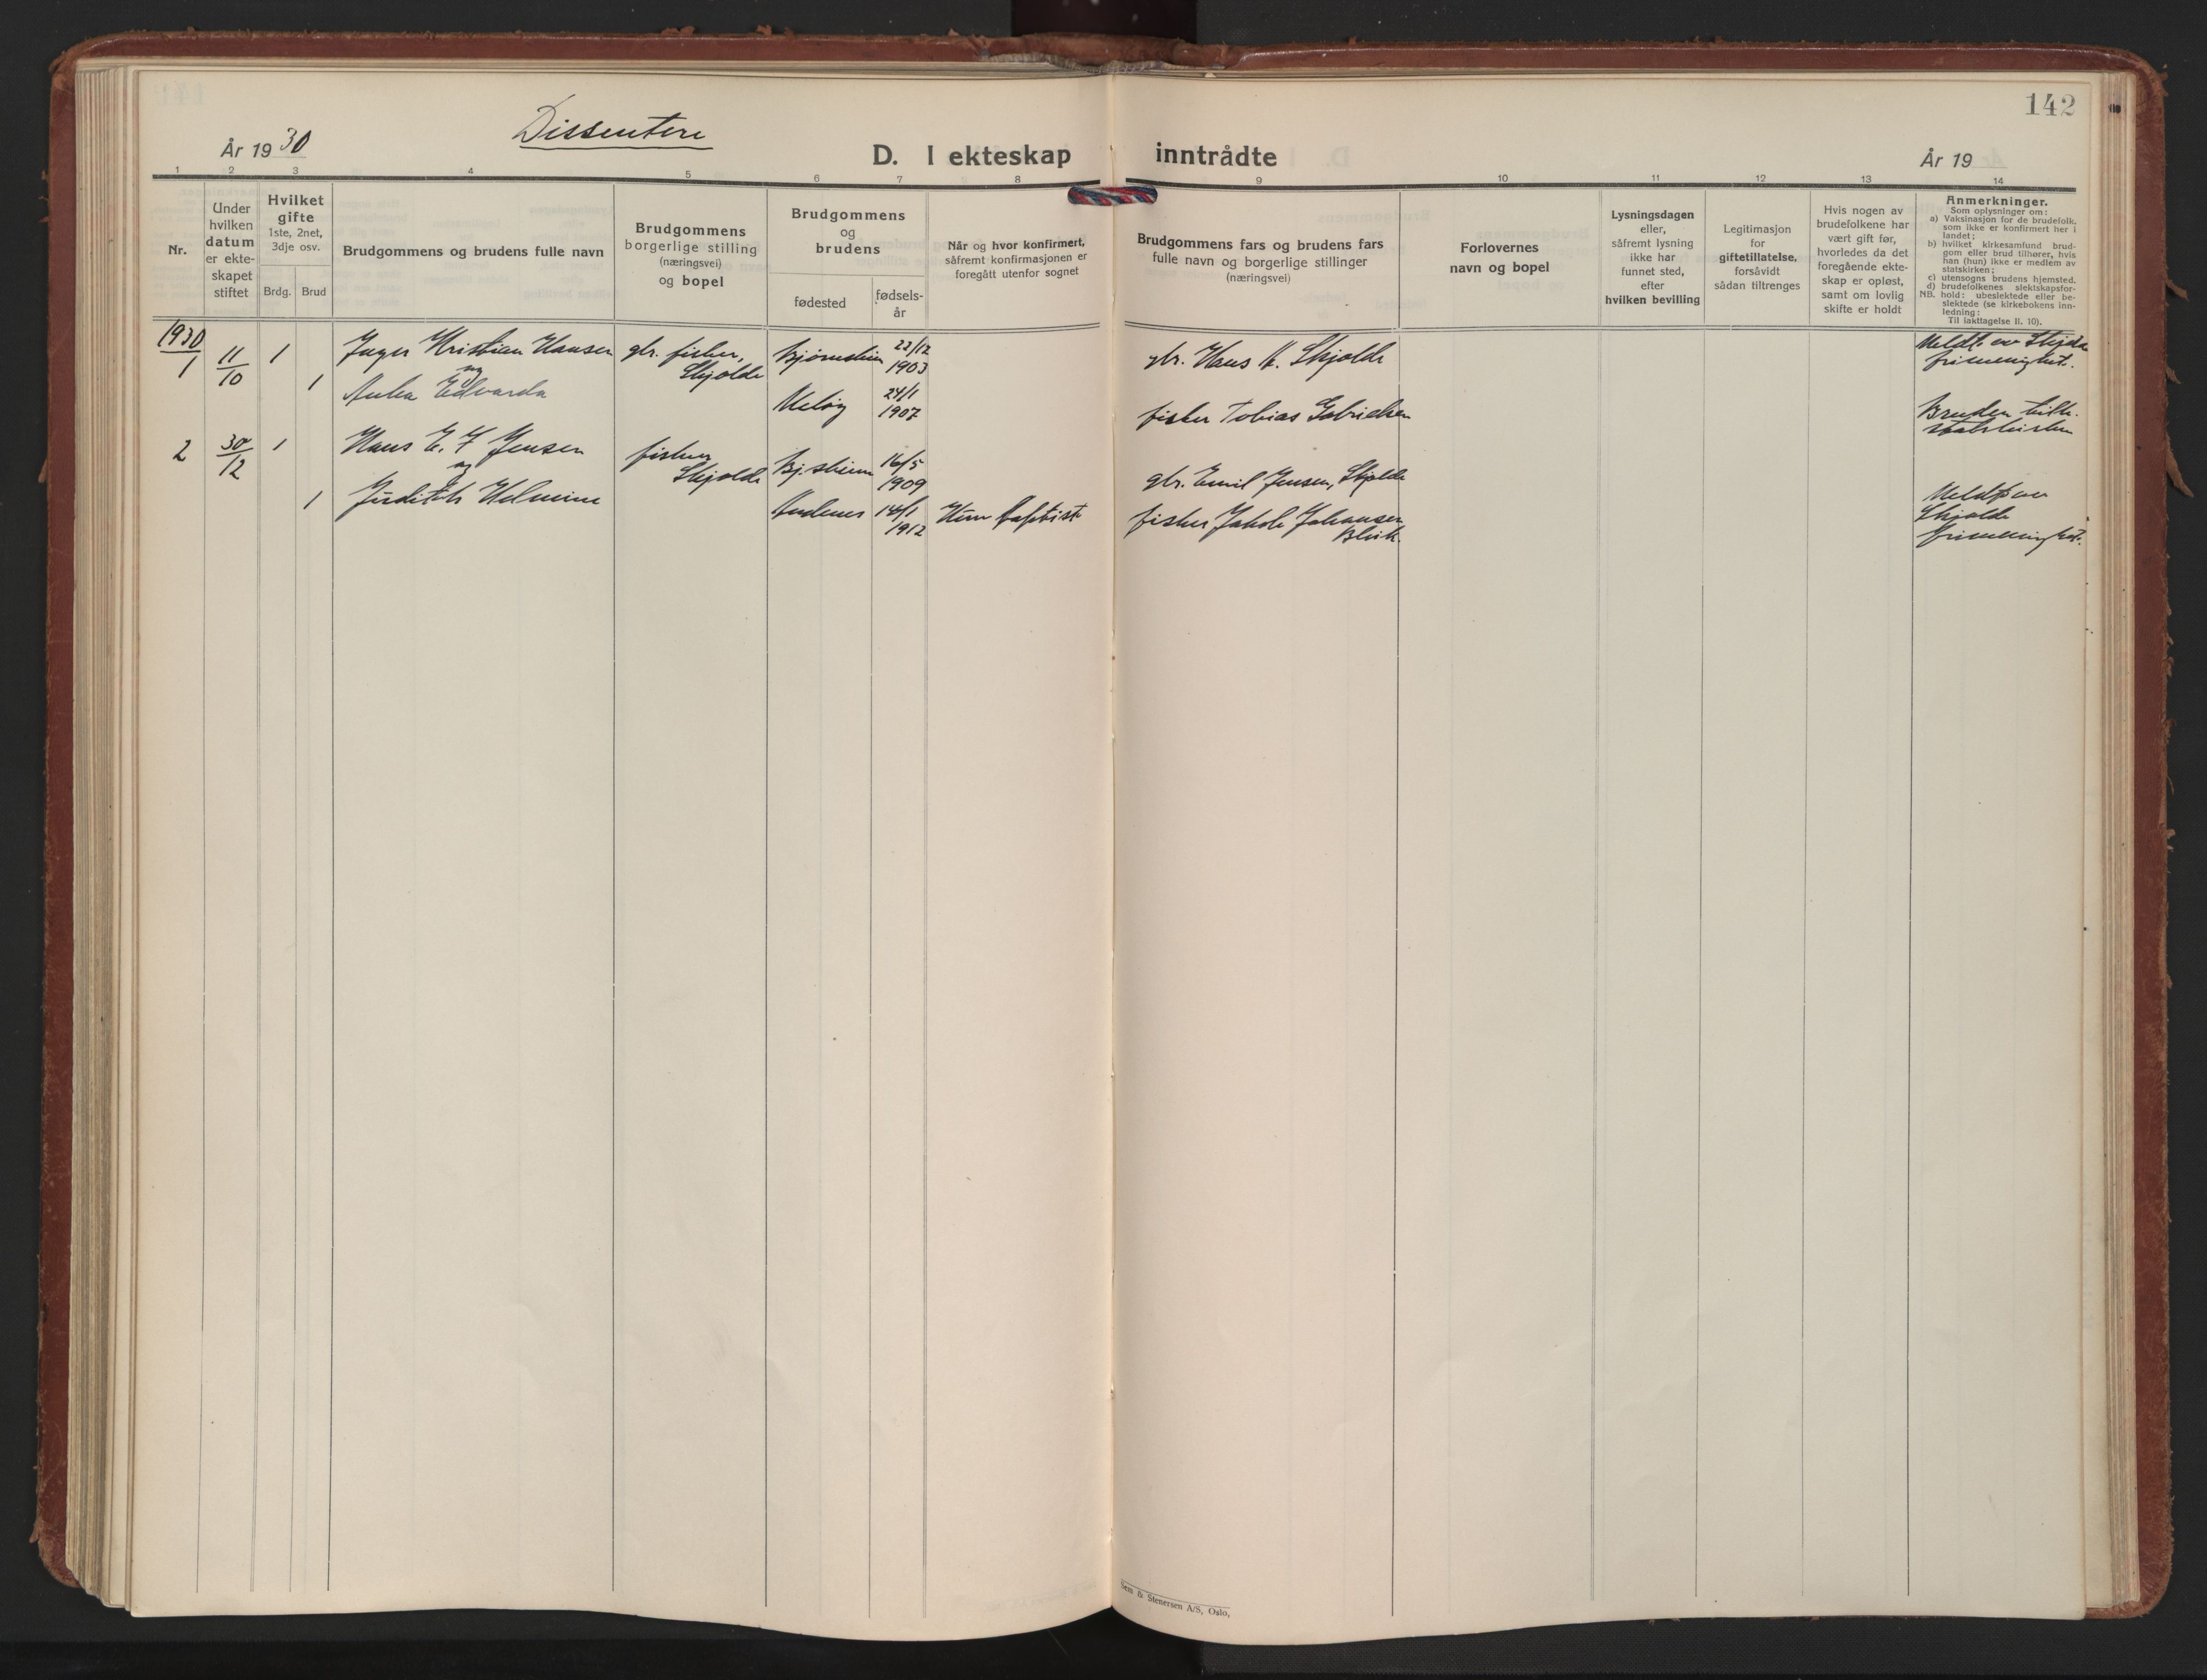 142
År 1930
Dissentere
D. I ekteskap inntrådte
År 19
1 2 3 4 5 6 7 8 9 10 11 12 13 14
Nr.
Under
hvilken
datum
er ekte-
skapet
stiftet
Hvilket
gifte
1ste, 2net,
3dje osv.
Brdg. Brud
Brudgommens og brudens fulle navn
Brudgommens
borgerlige stilling
(næringsvei)
og bopel
Brudgommens
og
brudens
fødested
fødsels-
år
Når og hvor konfirmert,
såfremt konfirmasjonen er
foregått utenfor sognet
Brudgommens fars og brudens fars
fulle navn og borgerlige stillinger
(næringsvei)
Forlovernes
navn og bopel
Lysningsdagen
eller,
såfremt lysning
ikke har
funnet sted,
efter
hvilken bevilling
Legitimasjon
for
giftetillatelse,
forsåvidt
sådan tiltrenges
Hvis nogen av
brudefolkene har
vært gift før,
hvorledes da det
foregående ekte-
skap er opløst,
samt om lovlig
skifte er holdt
Anmerkninger.
Som oplysninger om:
a) Vaksinasjon for de brudefolk,
som ikke er konfirmert her i
landet;
b) hvilket kirkesamfund brud-
gom eller brud tilhører, hvis
han (hun) ikke er medlem av
statskirken;
c) utensogns brudens hjemsted.
d) brudefolkenes slektskapsfor-
NB. hold: ubeslektede eller be-
slektede (se kirkebokens inn-
ledning:
Til iakttagelse II. 10).
1930
1 11/10 1 Inger Kristian Hansen gbr. fisker, Skjolde 23/12 1903 gbr. Hans K. Skjolde Meldt av Skjolde frimenighet.
og
1 Edvarda Meløy 24/1 1907 fisker Tobias Gabrielsen Bruden tilh. statskirken
2 30/12 1 Hans E. F Jensen fisker Skjolde Bj.skinn 16/5 1909 gbr. Emil Jensen, Skjolde
og
1 Juditch Helmine Andenes 14/1 1912 Hun baptist fisker Jakob Johansen Bleik. Meldt av Skjolde frimenighet.
Sem & Stenersen A/S, Oslo,